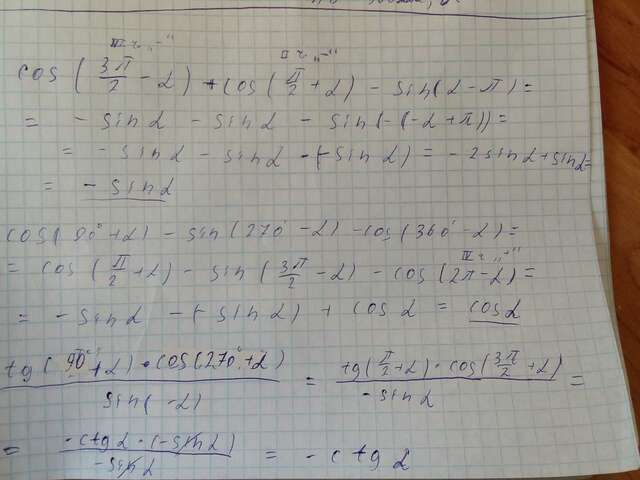 III ч „-“ II ч „-“
cos(3π/2 - α) + cos(π/2 + α) - sin(α - π) =
= - sin α - sin α - sin(-(-α + π)) =
= - sin α - sin α - (- sin α) = - 2 sin α + sin α =
= - sin α
cos(90° + α) - sin(270° - α) - cos(360° - α) =
IV ч „-“
= cos(π/2 + α) - sin(3π/2 - α) - cos(2π - α) =
= - sin α - (- sin α) + cos α = cos α
tg(90° + α) · cos(270° + α) / sin(-α) = tg(π/2 + α) · cos(3π/2 + α) / - sin α =
= - ctg α · (- sin α) / - sin α = - ctg α